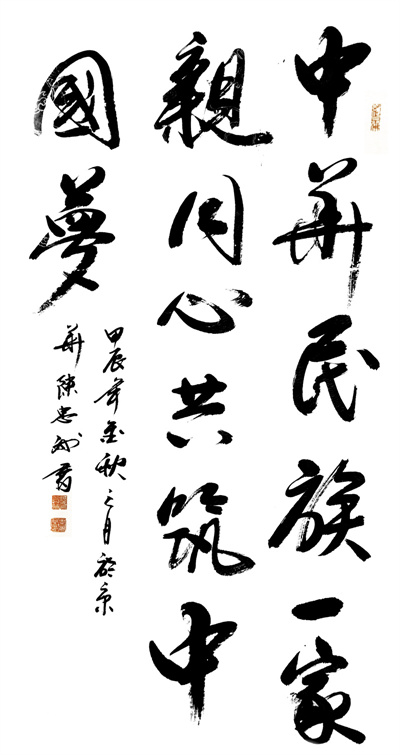 中華民族一家
親同心共筑中
國夢
甲辰年金秋之月於京
華陳忠
書